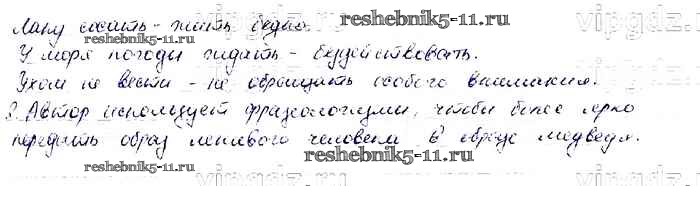 Лапу сосать - жить бедно.
У моря погоды ждать - бездействовать.
Ухом не вести - не обращать особого внимания.
3. Автор использует фразеологизмы, чтобы более ярко
передать образ ленивого человека в образе медведя.
reshebnik5-11.ru
reshebnik5-11.ru
reshebnik5-11.ru